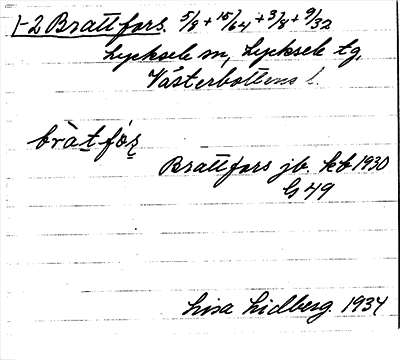 1-2 Brattfors. 5/8 + 15/64 + 3/8 + 9/32
Lycksele sn, Lycksele tg,
Västerbottens l.
bràt fórs
Brattfors jb. kb 1930
G 49
Lisa Lidberg. 1934